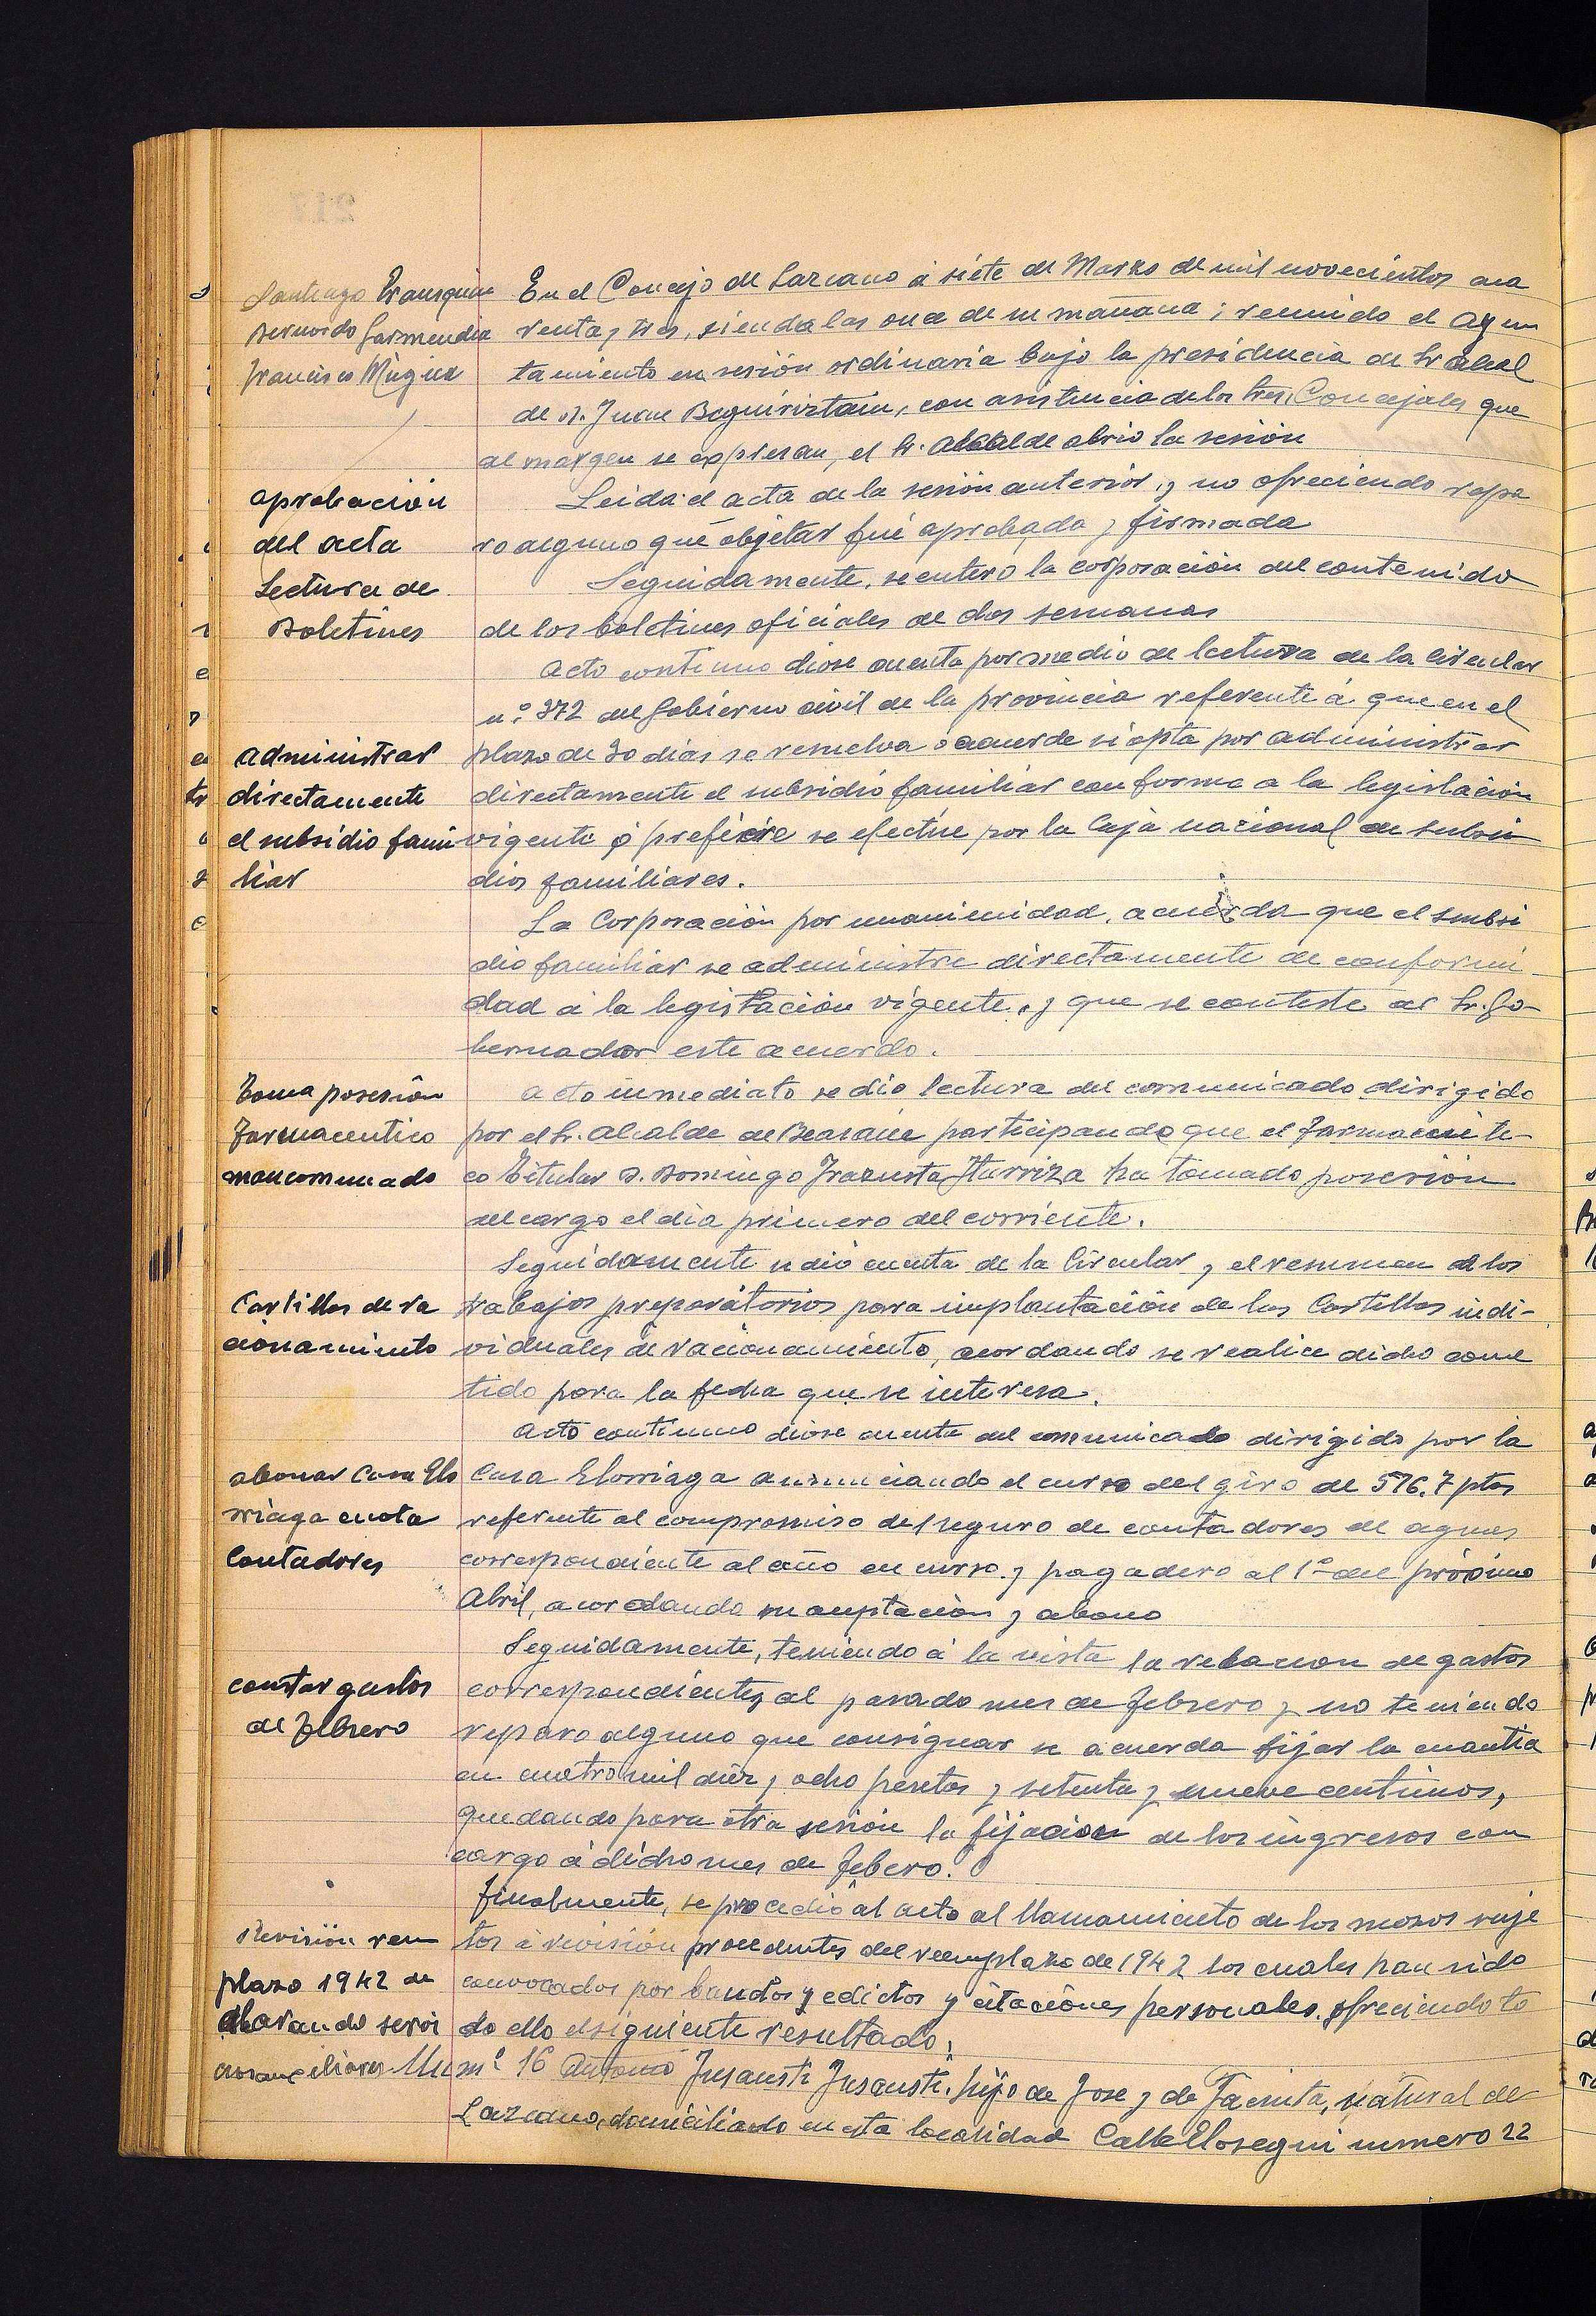 Santiago Iransquin
Bernardo Garmendia
Francisco Múgica
En el Concejo de Lazcano á siete de Marzo de mil novecientos cua
renta y tres, siendo las once de su mañana; reunido el Ayun
tamiento en sesión ordinaria bajo la presidencia de Sr Alcal
de D. Juan Beguiristain, con asistencia de los tres Concejales que
al margen se expresan, el Sr. Alcalde abrió la sesión
aprobación
del acta
Leida el acta de la sesión anterior, y no ofreciendo repa
ro alguno que objetar fué aprobada y firmada
Lectura de
Boletines
Seguidamente, se enteró la corporación del contenido
de los boletines oficiales de dos semanas
Acto continuo diose cuenta por medio de lectura de la Circular
n.º 372 del Gobierno civil de la provincia referente á que en el
administrar
directamente
el subsidio fami
liar
plazo de 30 dias se resuelva o acuerde si opta por administrar
directamente el subsidio familiar conforme a la legislación
vigente ó prefiere se efectúe por la Caja nacional de subsi
dios familiares.
La Corporación por unanimidad, acuerda que el subsi
dio familiar se administre directamente de conformi-
dad á la legislación vigente, y que se conteste al Sr. Go-
bernador este acuerdo.
Toma posesión
Farmaceutico
mancomunado
Acto inmediato se dio lectura del comunicado dirigido
por el Sr. Alcalde de Beasain participando que el farmaceuti-
co Titular D. Domingo Irazusta Iturriza ha tomado posesión
del cargo el dia primero del corriente.
Seguidamente se dió cuenta de la Circular y el resumen de los
Cartillas de ra
cionamiento
trabajos preparátorios para implantación de las Cartillas indi-
viduales de racionamiento, acordando se realice dicho come
tido para la fecha que se interesa.
Acto continuo diose cuenta del comunicado dirigido por la
abonar Casa Elo
rriaga cuota
Contadores
Casa Elorriaga anunciando el curso del giro de 576.7 ptas
referente al compromiso del seguro de contadores de aguas
correspondiente al año en curso, y pagadero al 1º del próximo
Abril, acordando su aceptación y abono
Seguidamente, teniendo á la vista la relación de gastos
constar gastos
de Febrero
correspondientes al pasado mes de Febrero y no teniendo
reparo alguno que consignar se acuerda fijar la cuantia
en cuatro mil diez y ocho pesetas y setenta y nueve centimos,
quedando para otra sesión la fijación de los ingresos con
cargo á dicho mes de Febero.
Finalmente, se procedió al acto al llamamiento de los mozos suje
Revisión reem
plazo 1942 de
clarando servi
cios auxiliares
tos á revisión procedentes del reemplazo de 1942 los cuales han sido
convocados por bandos y edictos y citaciones personales, ofreciendo to
do ello el siguiente resultado:
Num.º 16 Antonio Jusausti Jusausti, hijo de Jose y de Jacinta, natural de
Lazcano, domiciliado en esta localidad Calle Elosegui numero 22